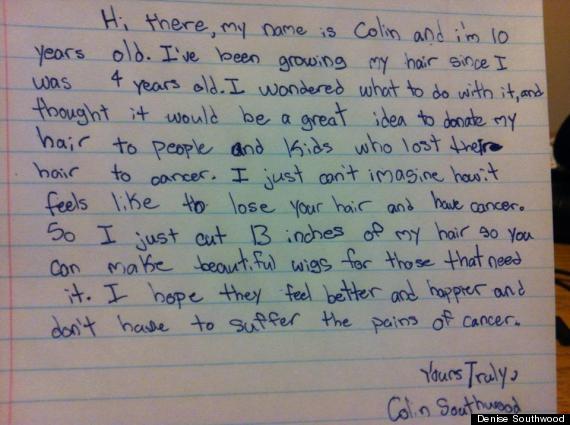 Hi there, my name is Colin and i'm 10
years old. I've been growing my hair since I
was 4 years old. I wondered what to do with it, and
thought it would be a great idea to donate my
hair to people and kids who lost their
hair to cancer. I just can't imagine how it
feels like to lose your hair and have cancer.
So I just cut 13 inches of my hair so you
can make beautiful wigs for those that need
it. I hope they feel better and happier and
don't have to suffer the pains of cancer.
Yours Truly,
Colin Southwood
Denise Southwood